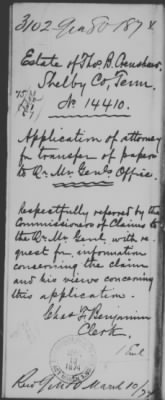 3102
Estate of Thos B. Crenshaw,
Shelby Co, Tenn.
No 14410.
Application of attorney
for transfer of papers
to Qr. Mr. Genls Office.
Respectfully referred by the
Commissioners of Claims to
the Qr. Mr. Genl. with re-
quest for information
concerning the claim
and his views concerning
this application.
Chas F. Benjamin
Clerk.
1874
March 10/74